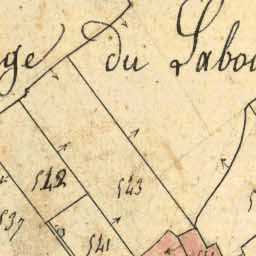 ge du Labou
542
543
537
541